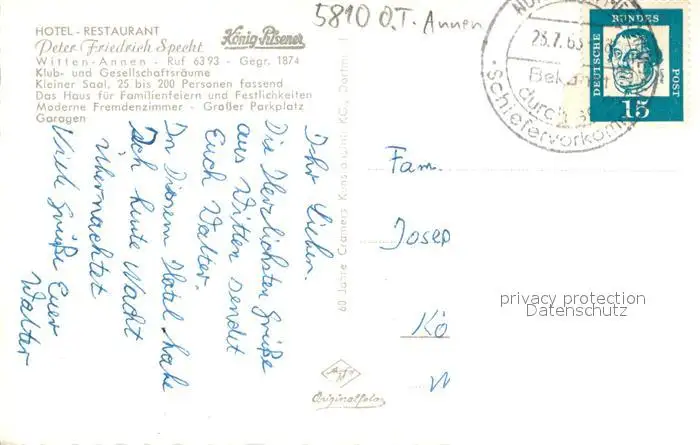 HOTEL - RESTAURANT
Peter Friedrich Specht
Witten-Annen - Ruf 6393 - Gegr. 1874
Klub- und Gesellschaftsräume
Kleiner Saal, 25 bis 200 Personen fassend
Das Haus für Familienfeiern und Festlichkeiten
Moderne Fremdenzimmer - Großer Parkplatz
Garagen
König-Pilsener
5810 O.T. Annen
23.7.63
durch
Schiefervorkom
DEUTSCHE BUNDES POST
15
Ihr Lieben.
Die Herzlichsten Grüße
aus Witten sendet
Euch Walter.
In Diesem Hotel habe
Ich heute Nacht
übernachtet
Viele Grüße Euer
Walter
60 Jahre Cramers Kunstanstalt KG., Dortm
Fam.
Josep
Kö
privacy protection
Datenschutz
Agfa
Originalfoto